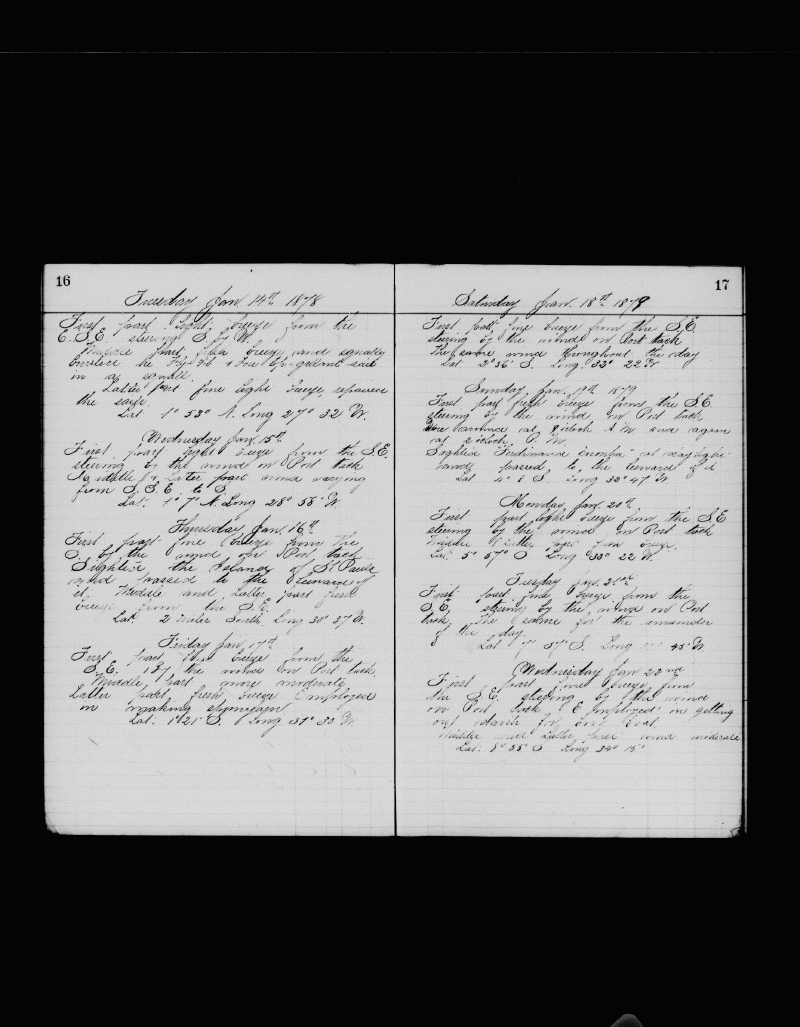 16
Tuesday Jan 14th 1878
First part light breeze from the
E.S.E. steering S by W.
Middle part fresh breeze and squally
the Fore top-gallant sail
in a squall.
Latter part fine light breeze, repaired
the sail.
Lat. 1° 53° N. Long 27° 32' W.
Wednesday Jan 15th
First part light breeze from the S.E.
steering by the wind on Port tack
Middle & Latter part wind varying
from S.S.E. to S
Lat. 1° 7' N. Long 28° 58' W
Thursday Jan. 16th
First part fine breeze from the
S. by the wind on Port tack
Sighted the Island of St Pauls
and passed to the leeward of
it Middle and Latter part fresh
breeze from the S.E.
Lat. 2 miles South, Long 30° 37' W.
Friday Jan 17th
First part fine breeze from the
S.E. by the wind on Port tack,
Middle part more moderate
Latter part fresh breeze Employed
in making spunyarn
Lat. 1° 21' S. Long 31° 53' W
17
Saturday Jan. 18th 1879
First part fine breeze from the S.E
steering by the wind on Port tack
The same wind throughout the day
Lat. 2° 36' S. Long. 33° 22' W
Sunday Jan. 19th 1879
First part fresh breeze from the S.E
steering by the wind on Port tack,
at 8 o'clock A.M. and again
at 2 o'clock P.M.
Sighted Ferdinand at daylight
passed to the leeward of it
Lat 4° 8' S. Long 33° 47' W
Monday Jan. 20th
First part light breeze from the S.E
steering by the wind on Port tack
Middle & Latter part fresh breeze.
Lat. 5° 57' S Long 33° 22' W.
Tuesday Jan. 21st
First part fine breeze from the
S.E. steering by the wind on Port
tack, The same for the remainder
of the day.
Lat 7° 57' S. Long 45' W
Wednesday Jan 22nd
First part fine breeze from
the S.E. steering by the wind
on Port tack, Employed in getting
out for one boat.
Middle and Latter part wind moderate
Lat. 8° 55' S Long 34° 15'